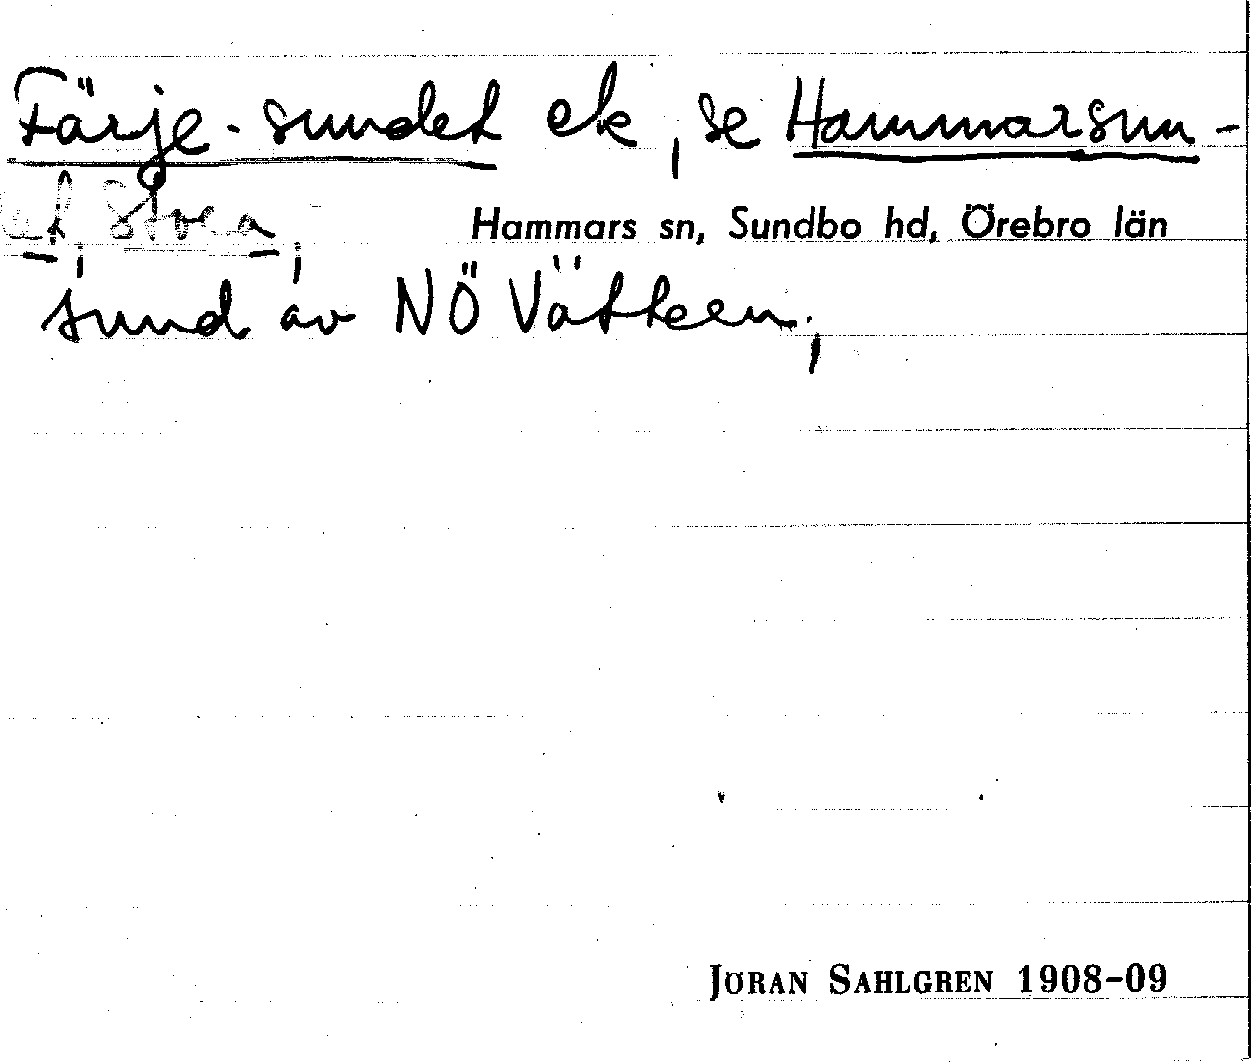 Färje-sundet ek, se Hammarsun-
det, Stora,
Hammars sn, Sundbo hd, Örebro län
sund av NÖ Vättern,
JÖRAN SAHLGREN 1908-09